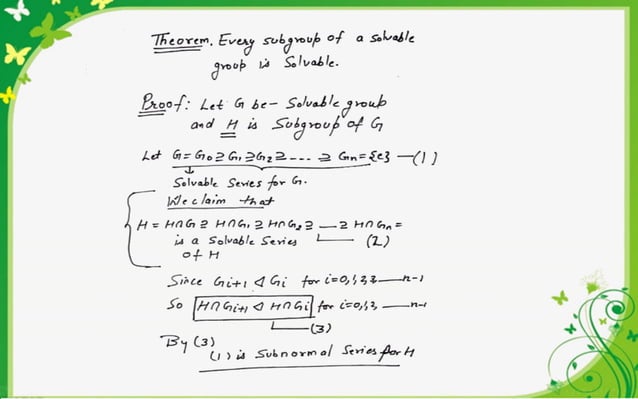 Theorem. Every subgroup of a solvable
group is Solvable.
Proof: Let G be - Solvable group
and H is Subgroup of G
Let G = G0 ⊇ G1 ⊇ G2 ⊇ --- ⊇ Gn = {e} — (1)
Solvable Series for G.
We claim that
H = H∩G ⊇ H∩G1 ⊇ H∩G2 ⊇ — ⊇ H∩Gn =
is a Solvable Series — (2)
of H
Since Gi+1 ◁ Gi for i=0,1,2,3 — n-1
So H∩Gi+1 ◁ H∩Gi for i=0,1,2, — n-1
— (3)
By (3)
(1) is Subnormal Series for H